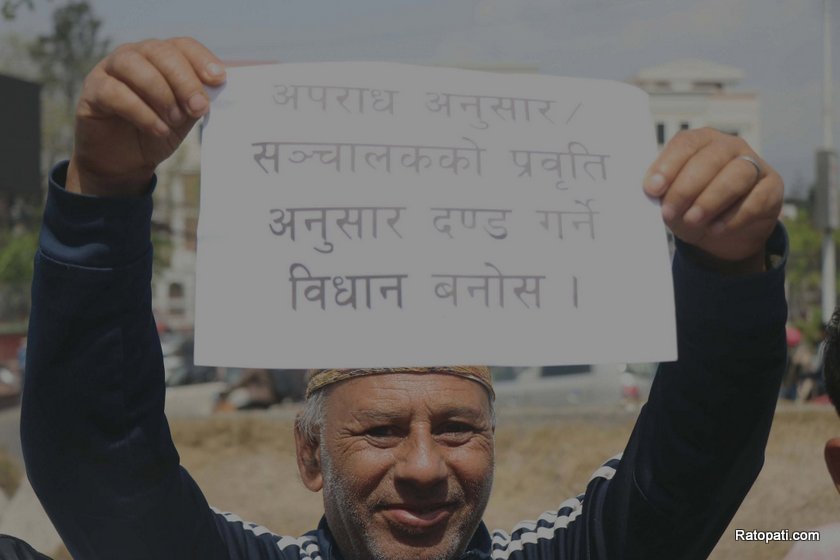 अपराध अनुसार /
सञ्चालकको प्रवृति
अनुसार दण्ड गर्ने
विधान बनोस ।
Ratopati.com